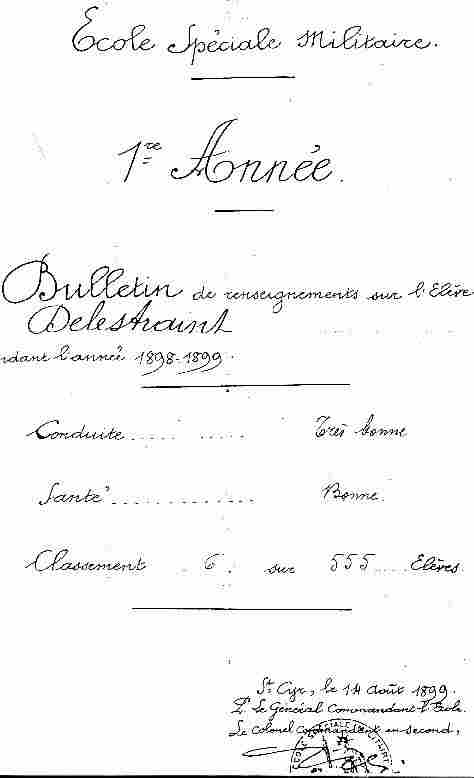 Ecole Spéciale Militaire.
1re Année.
Bulletin de renseignements sur l'Elève
Delestraint
ndant l'année 1898-1899.
Conduite .... ..... Très bonne
Santé ............. Bonne.
Classement . 6 . sur 555 .... Elèves.
St Cyr, le 14 Août 1899.
P. le Général Commandant l'Ecole.
Le Colonel Commandant en second,
ECOLE SPÉCIALE MILITAIRE